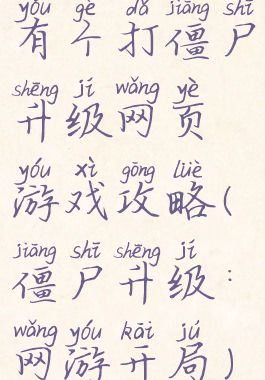 yǒu gè dǎ jiāng shī
有个打僵尸
shēng jí wǎng yè
升级网页
yóu xì gōng lüè
游戏攻略(
jiāng shī shēng jí
僵尸升级:
wǎng yóu kāi jú
网游开局)